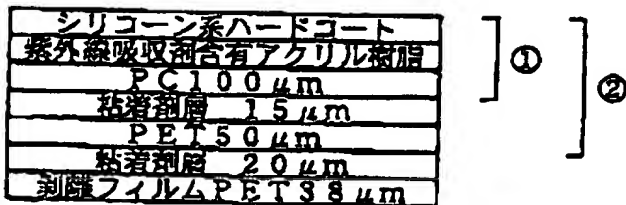 シリコーン系ハードコート
紫外線吸収剤含有アクリル樹脂
PC100μm
粘着剤層 15μm
PET50μm
粘着剤層 20μm
剥離フィルムPET38μm
①
②